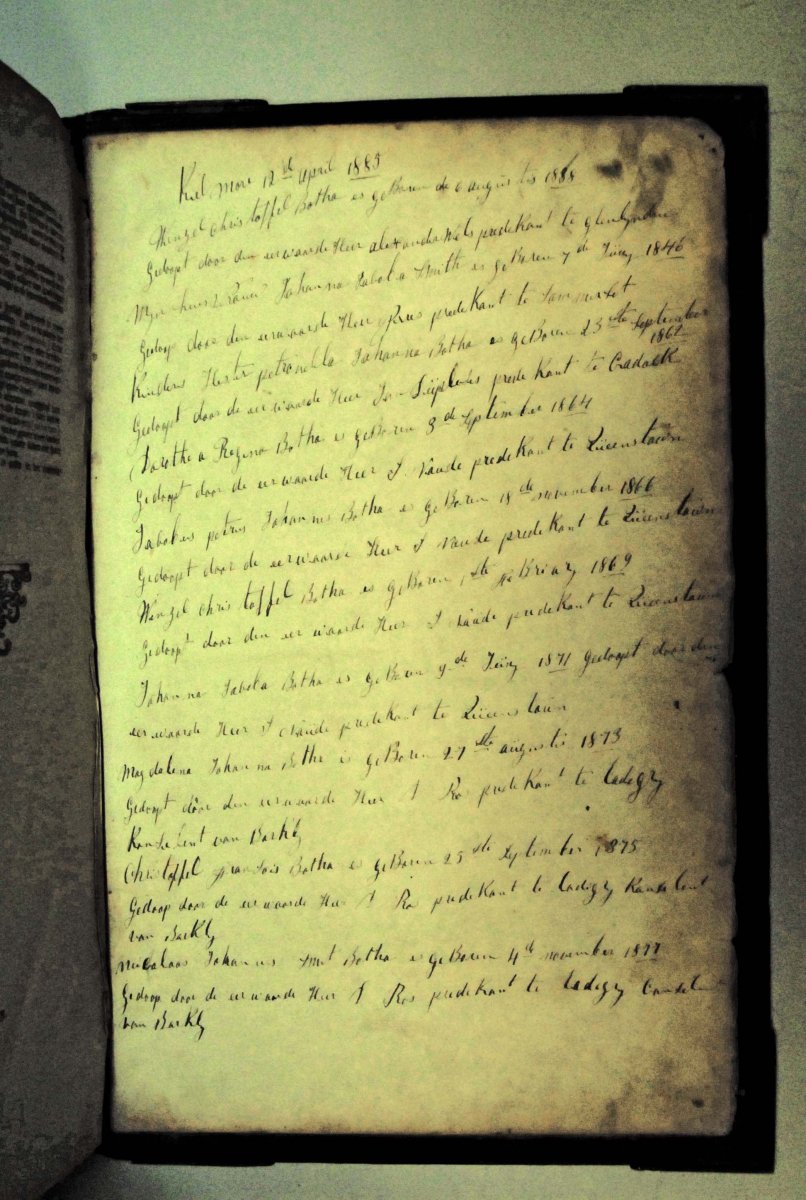 Kil more 12 de April 1885
Wenzel Christoffel Botha is geBoren de 6 augustis
Gedoopt door den eerwaarde Heer alexander Wels predekant te glenlynden
Myn Johanna Isabela Smith is geBoren 7 de Juny 1846
Gedoop door den eerwaarde Heer Pries predekant te Sommerset
Kinders Hester petronella Johanna Botha is geBoren 23 ste September 1862
Gedoopt door de eerwaarde Heer predekant te Cradock
Dorothea Regina Botha is geBoren 3 de September 1864
Gedoopt door de eerwaarde Heer S Naude predekant te Queenstown
Jakobus petrus Johannis Botha is geBoren 18 de november 1866
Gedoopt door de eerwaarde Heer S Naude predekant te Queenstown
Wenzel Christoffel Botha is geBoren 1ste feBriary 1869
Gedoopt door den eerwaarde Heer S Naude predekant te Queenstown
Johanna Isabela Botha is geBoren 9 de Juny 1871 Gedoopt door den
eerwaarde Heer S Naude predekant te Queenstown
Magdalena Johanna Botha is geBoren 27 ste augustis 1873
Gedoopt door den eerwaarde Heer A Ros predekant te ladegry
Kandelent van Barkly
Christoffel fransois Botha is geBoren 25 ste September 1875
Gedoop door de eerwaarde Heer A Ros predekant te ladegry Kandelent
van Barkly
Nicolaas Johannis Smit Botha is geBoren 4 de november 1877
Gedoop door de eerwaarde Heer A Ros predekant te ladegry
van Barkly